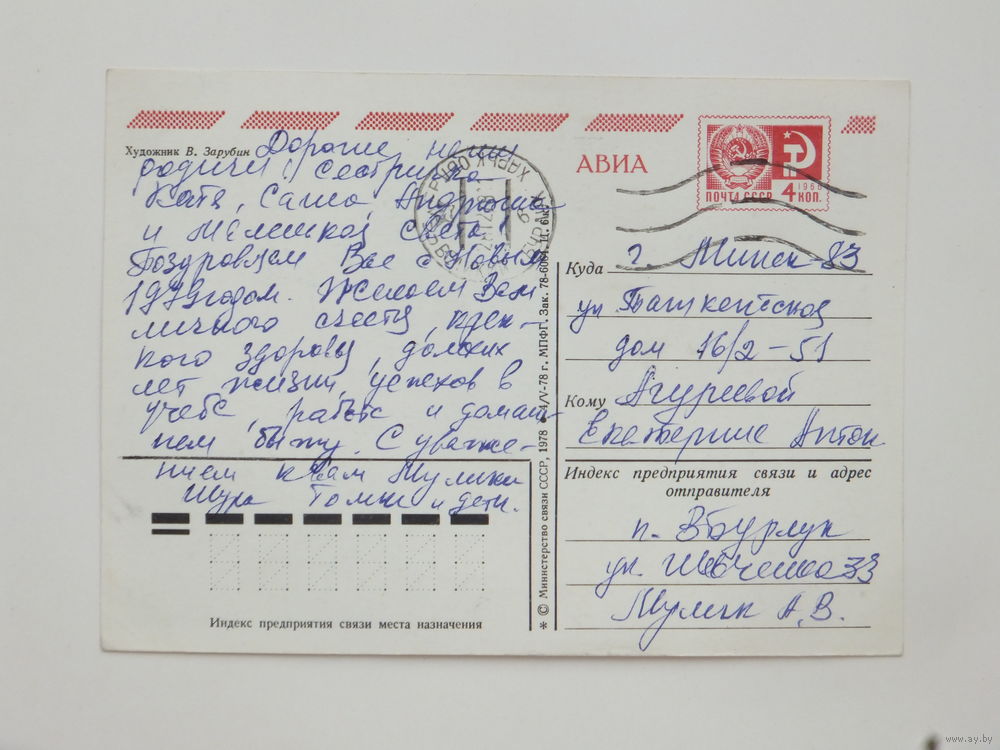 Художник В. Зарубин
Дорогие, наши
родичи! Сестричка
Катя, Саша Андрюша
и Света!
Поздровляем Вас с Новым
1979 годом. Желаем Вам
личного счастя, креп-
кого здоровя, долгих
лет жизни, успехов в
учебе, работе и домаш-
нем быту. С уваже-
нием к Вам Мулики
Шура Томи и дети.
Индекс предприятия связи места назначения
* © Министерство связи СССР, 1978 24/V-78 г. МПФГ. Зак. 78-6064. Ц. 6 к.
АВИА
ПОЧТА СССР 4 КОП. 1966
Куда г. Минск 83
ул Ташкентская
дом 16/2-51
Кому Агуреевой
Екатерине Антон
Индекс предприятия связи и адрес
отправителя
п. ВБурлук
ул. Шевченко 33
Мулик А.В.
www.ay.by